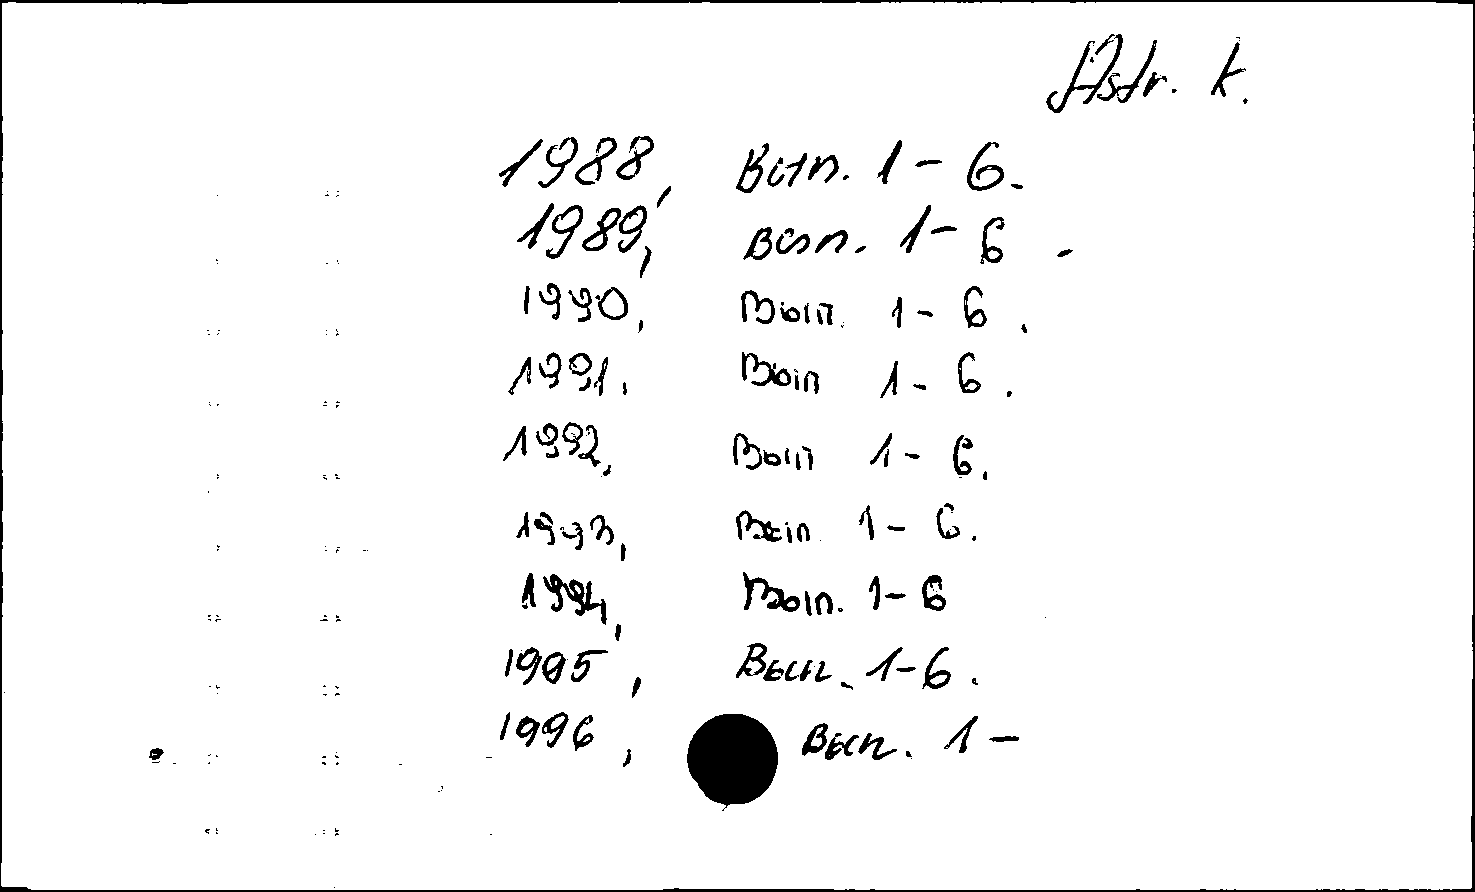 Astr. k.
1988, Вып. 1-6.
1989, Вып. 1-6.
1990, Вып. 1-6.
1991, Вып 1-6.
1992, Вып 1-6.
1993, Вып. 1-6.
1994, Вып. 1-6
1995, Вып. 1-6.
1996, Вып. 1-